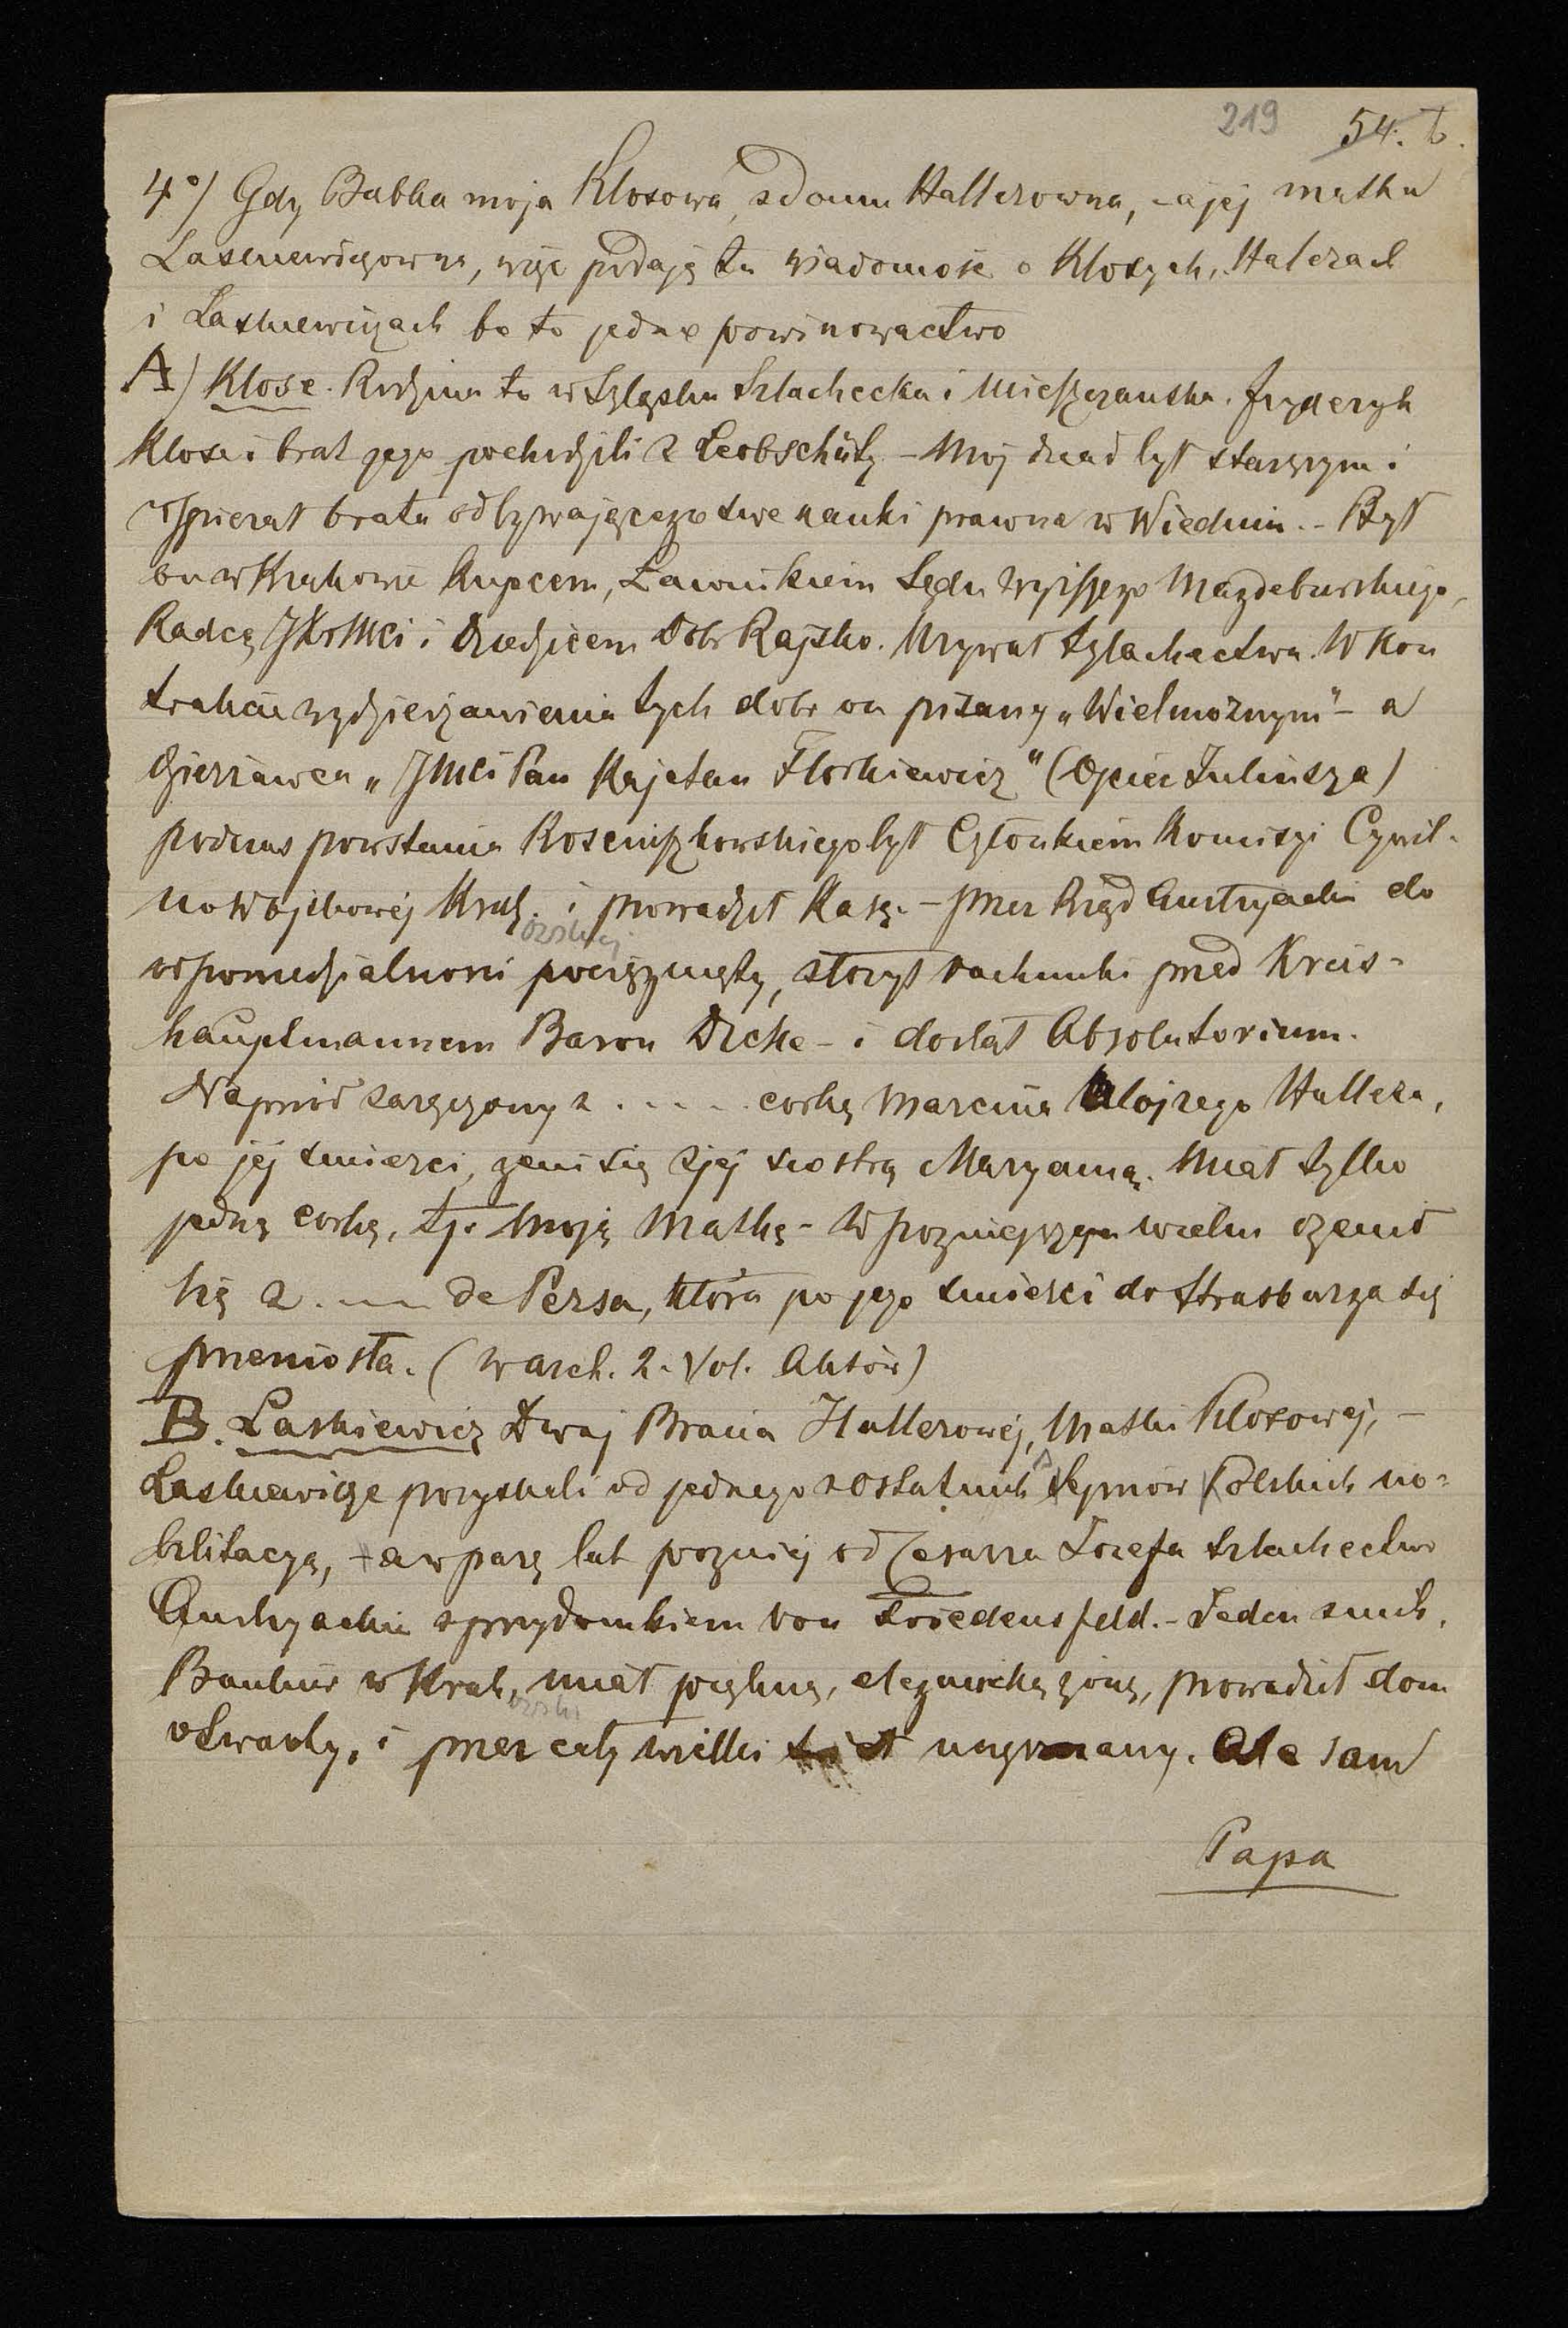 219 54. b.
4°/ Gdy Babka moja Klosowa, z domu Hallerowna, - a jej matka
Laskiewiczowna, więc podaję tu wiadomość o Klosych, Halerach
i Laskiewiczach bo to jedne powinowactwo
A) Klose. Rodzina ta w Szląsku Szlachecka i Mieszczanska. Fryderyk
Klose i brat jego pochodzili z Leobschütz - Moj dziad był starszym i
wspierał brata odbywającego swe nauki prawne w Wiedniu. - Był
on w Krakowie Kupcem, Ławnikiem Sądu wyższego Magdeburskiego,
Radcą JKrMci i dziedzicem Dobr Rajsko. Używał szlachectwa. W Kon
trakcie wydzierżawienia tych dobr on pisany „Wielmożnym" - a
dzierżawca „JMci Pan Kajetan Florkiewicz" (Ojciec Juliusza)
podczas powstania Kosciuszkowskiego był Członkiem Komisyi Cywil-
no Wojskowéj Krak. i prowadził Kasę. - przez Rząd Austryacki do
owskiej
odpowiedzialnosci pociągnięty, złożył rachunki przed Kreis-
hauptmannem Baron Dicke - i dostał Absolutorium.
Naprzód zaręczony z . . . . . corką Marcina Alojzego Hallera,
po jej smierci, żeni się z jej siostrą Maryanną. Miał tylko
jedną corkę, tj. Moją Matkę - W pozniejszym wieku ożenił
się z . --- de Persa, która po jego smierci do Strasburga się
przeniosła. (w arch. 2. Vol. Aktów)
B. Laskiewicz Dwaj Bracia Hallerowéj, Matki Klosowej, -
Laskiewicze pozyskali od jednego z ostatnich Sejmow Polskich no-
bilitacyą, - a w parę lat pozniej od Cesarza Jozefa szlachectwo
Austryackie z przydomkiem von Friedensfeld. - Jeden z nich,
Bankier w Krak, miał piękną, elegancką żonę, prowadził dom
owski
otwarty, i przez cały wielki świat uczęszczany. Ale sam
Papa